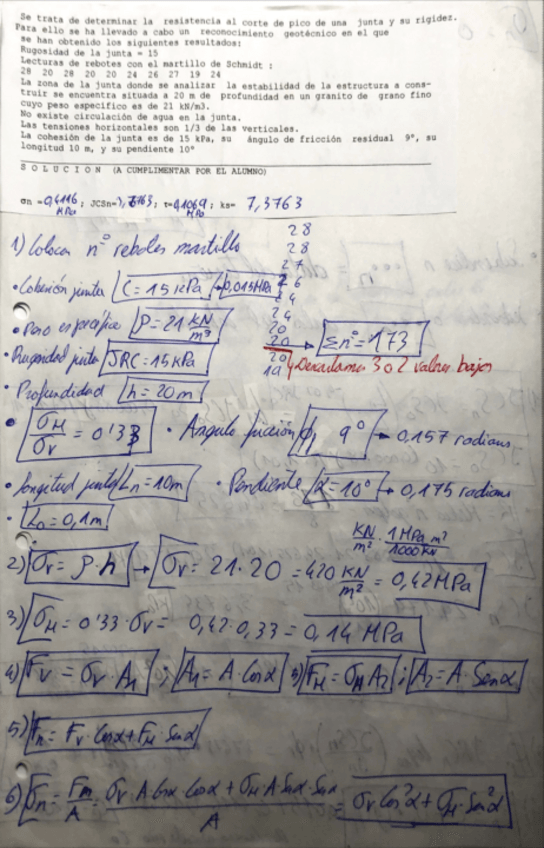 Se trata de determinar la resistencia al corte de pico de una junta y su rigidez.
Para ello se ha llevado a cabo un reconocimiento geotécnico en el que
se han obtenido los siguientes resultados:
Rugosidad de la junta = 15
Lecturas de rebotes con el martillo de Schmidt :
28 20 28 20 20 24 26 27 19 24
La zona de la junta donde se analizar la estabilidad de la estructura a cons-
truir se encuentra situada a 20 m de profundidad en un granito de grano fino
cuyo peso especifico es de 21 kN/m3.
No existe circulación de agua en la junta.
Las tensiones horizontales son 1/3 de las verticales.
La cohesión de la junta es de 15 kPa, su ángulo de fricción residual 9°, su
longitud 10 m, y su pendiente 10°
S O L U C I O N (A CUMPLIMENTAR POR EL ALUMNO)
σn = 0,4116 MPa; JCSn= ; τ=0,1069 MPa; ks= 7,3763
1) Colocar nº rebotes martillo
28
28
27
26
24
24
20
20
20
19
Σnº=173
Descartamos 3 o 2 valores bajos
• Cohesión junta C = 15 kPa → 0,015MPa
• Peso específico ρ = 21 KN/m³
• Rugosidad junta JRC = 15 kPa
• Profundidad h = 20m
• σH/σV = 0'33 • Angulo fricción φ 9° → 0,157 radians
• longitud junta Ln = 10m • Pendiente α = 10° → 0,175 radians
• Lo = 0,1m
KN/m² · 1 MPa m²/1000 KN
2) σv = ρ·h → σv = 21·20 = 420 KN/m² = 0,42 MPa
3) σH = 0'33·σv = 0,42·0,33 = 0,14 MPa
4) Fv = σv·A1 ; A1 = A·Cosα 5) FH = σH A2 ; A2 = A·Senα
5) Fn = Fv·Cosα + FH·Senα
6) σn = Fn/A = σv·A·Cosα·Cosα + σH·A·Senα·Senα / A = σv Cos²α + σH·Sen²α